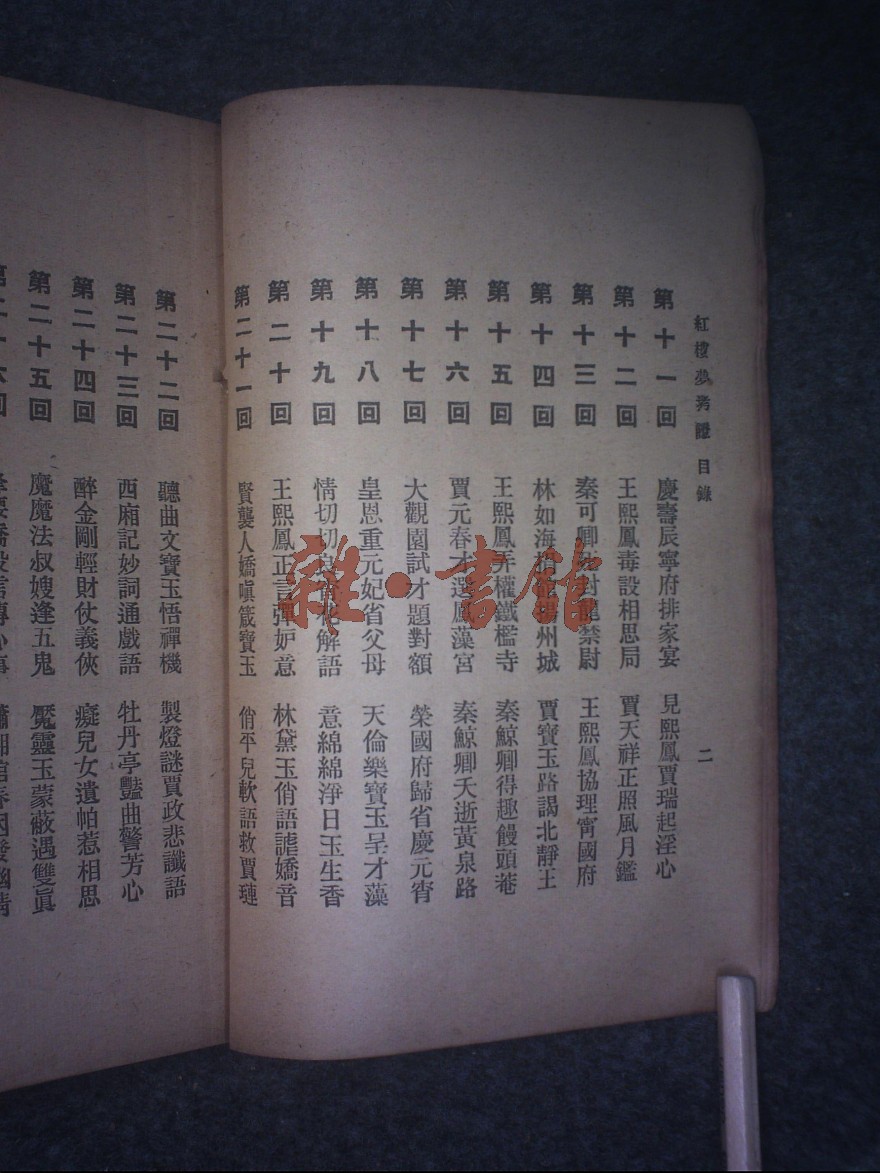 紅樓夢考證 目錄 二
第十一回 慶壽辰寧府排家宴 見熙鳳賈瑞起淫心
第十二回 王熙鳳毒設相思局 賈天祥正照風月鑑
第十三回 秦可卿死封龍禁尉 王熙鳳協理甯國府
第十四回 林如海捐館揚州城 賈寶玉路謁北靜王
第十五回 王熙鳳弄權鐵檻寺 秦鯨卿得趣饅頭菴
第十六回 賈元春才選鳳藻宮 秦鯨卿夭逝黃泉路
第十七回 大觀園試才題對額 榮國府歸省慶元宵
第十八回 皇恩重元妃省父母 天倫樂寶玉呈才藻
第十九回 情切切良宵花解語 意綿綿淨日玉生香
第二十回 王熙鳳正言彈妒意 林黛玉俏語謔嬌音
第二十一回 賢襲人嬌嗔箴寶玉 俏平兒軟語救賈璉
第二十二回 聽曲文寶玉悟禪機 製燈謎賈政悲讖語
第二十三回 西廂記妙詞通戲語 牡丹亭豔曲警芳心
第二十四回 醉金剛輕財仗義俠 癡兒女遺帕惹相思
第二十五回 魘魔法叔嫂逢五鬼 魘靈玉蒙蔽遇雙眞
雜·書館